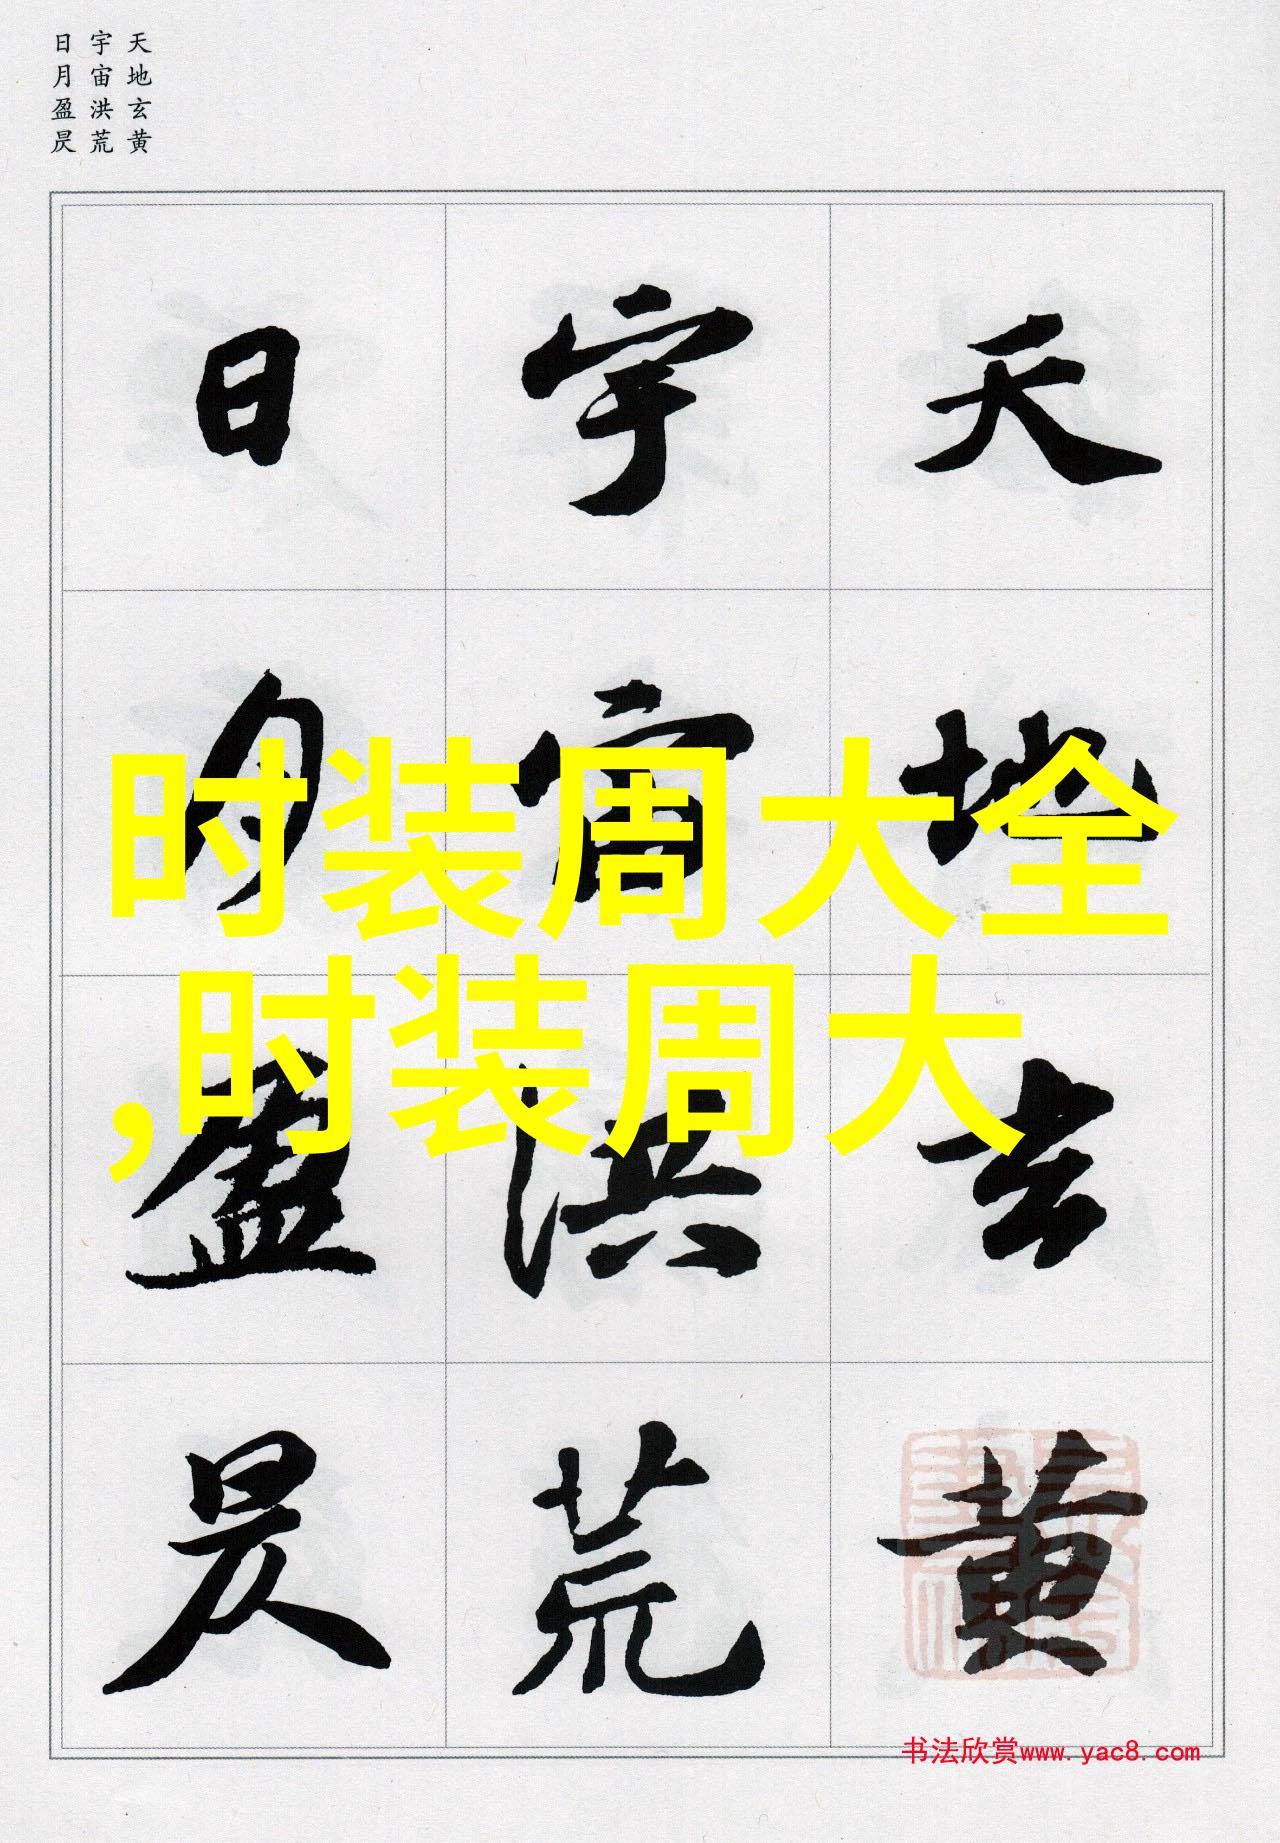 天地玄黄
宇宙洪荒
日月盈昃
天地玄黄
宇宙洪荒
日月盈昃
时装周大全
,时装周大
书法欣赏www.yac8.com